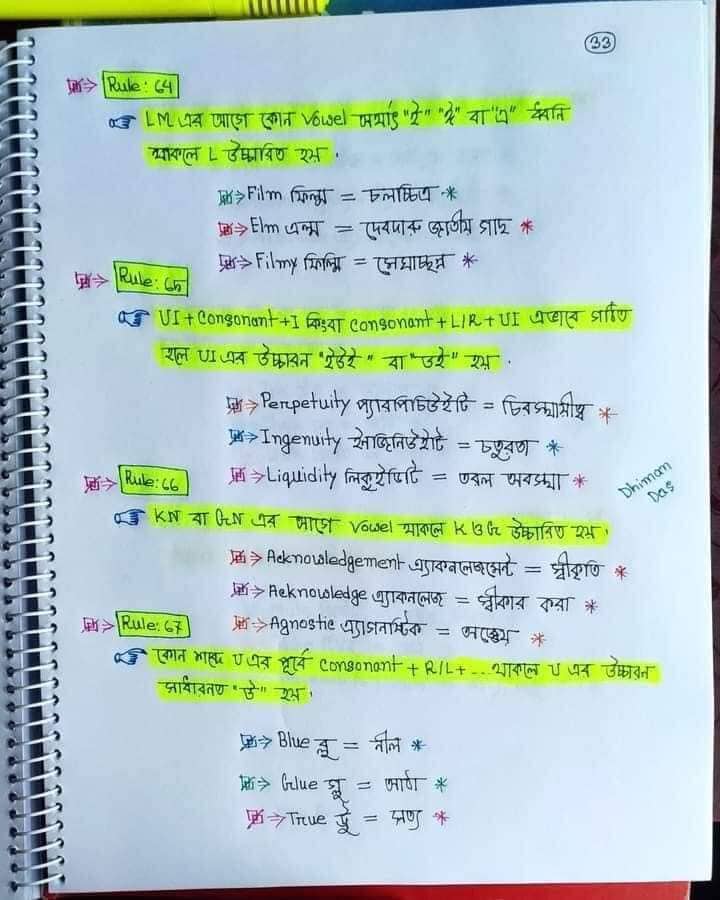 33
Rule: 64
LM এর আগে কোন Vowel অর্থাৎ "ই" "ঈ" বা "এ" ধ্বনি
থাকলে L উচ্চারিত হয়.
Film ফিল্ম = চলচ্চিত্র *
Elm এল্ম = দেবদারু জাতীয় গাছ *
Filmy ফিল্মি = মেঘাচ্ছন্ন *
Rule: 65
UI + Consonant + I কিংবা Consonant + L/R + UI এভাবে গঠিত
হলে UI এর উচ্চারন "ইউই" বা "উই" হয়.
Perpetuity প্যারপিচিউইটি = চিরস্থায়ীত্ব *
Ingenuity ইনজিনিউইটি = চতুরতা *
Rule: 66
Liquidity লিকুইডিটি = তরল অবস্থা *
Dhiman
Das
KN বা GN এর আগে Vowel থাকলে K ও G উচ্চারিত হয়.
Acknowledgement এ্যাকনলেজমেন্ট = স্বীকৃতি *
Acknowledge এ্যাকনলেজ = স্বীকার করা *
Rule: 67
Agnostic এ্যাগনাস্টিক = অজ্ঞেয় *
কোন শব্দে U এর পূর্বে Consonant + R/L + ... থাকলে U এর উচ্চারন
সাধারনত "উ" হয়.
Blue ব্লু = নীল *
Glue গ্লু = আঠা *
True ট্রু = সত্য *